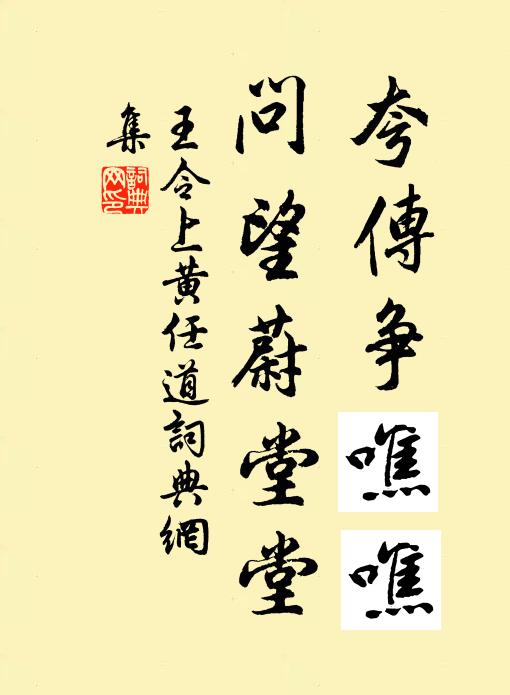 夸傳爭噍噍
問望蔚堂堂
王令上黄任道詞典網
集
詞典网印